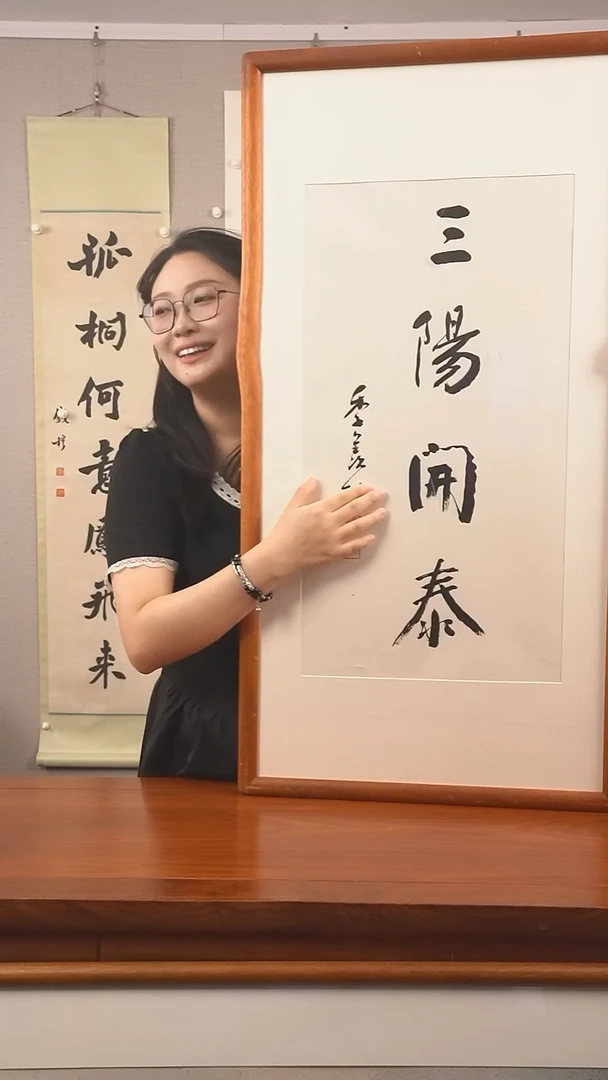 三陽開泰
孤桐何意鳳飛來